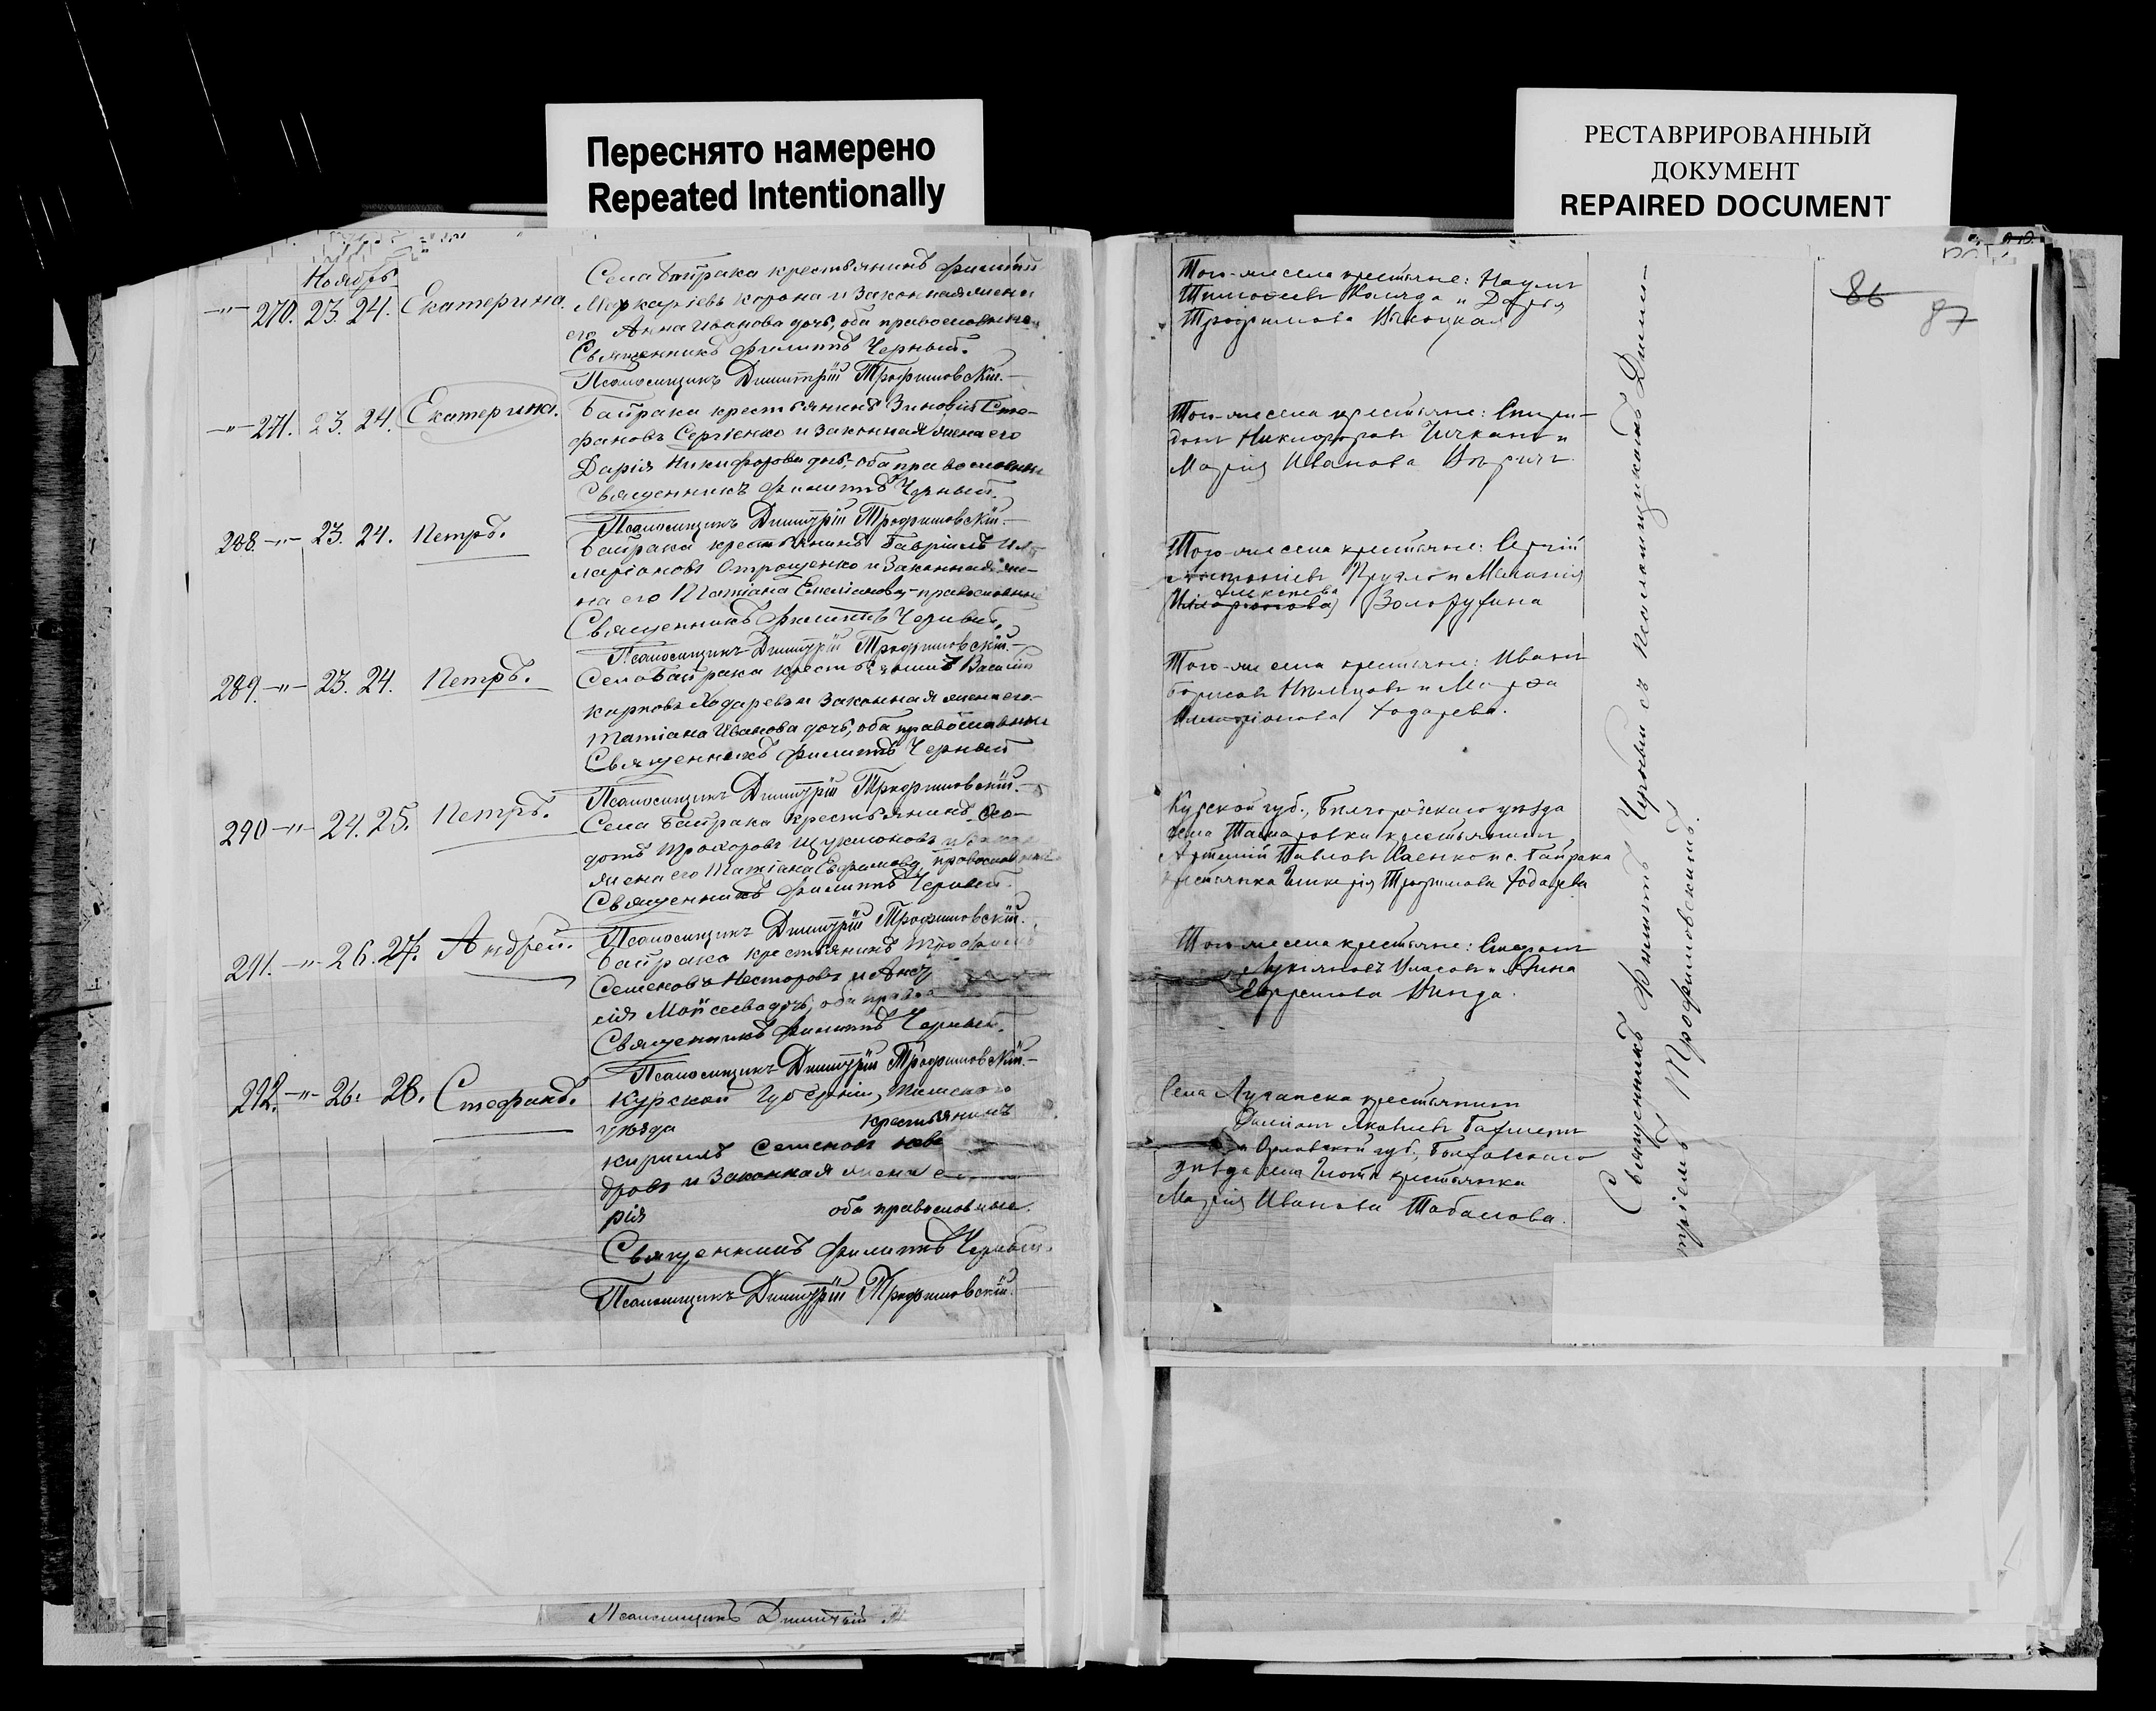 Переснято намерено
Repeated Intentionally
РЕСТАВРИРОВАННЫЙ
ДОКУМЕНТ
REPAIRED DOCUMENT
86
87
Ноябрь
-"- 270. 23. 24. Екатерина.
Села Байрака крестьянинъ Филиппъ
Макаріевъ Корона и законная жена
его Анна Иванова дочь, оба православные
Священникъ Филиппъ Черный.
Псаломщикъ Димитрій Трофимовскій.
Того-же села крестьяне: Наумъ
Тимофеевъ Коляда и Дарья
Трофимова
-"- 271. 23. 24. Екатерина.
Байрака крестьянинъ Зиновій Сте-
фановъ Сергіенко и законная жена его
Дарія Никифорова дочь, оба православные
Священникъ Филиппъ Черный.
Псаломщикъ Димитрій Трофимовскій.
Того-же села крестьяне: Спири-
донъ Никифоровъ и
Марія Иванова
288. -"- 23. 24. Петръ.
Байрака крестьянинъ Гавріилъ Ил-
ларіоновъ Отрощенко и законная же-
на его Татіана Емеліанова, православные
Священникъ Филиппъ Черный.
Псаломщикъ Димитрій Трофимовскій.
Того-же села крестьяне: Сергій
Антоніевъ и Меланія
Алексеева
(Иларіонова) Золотухина
289. -"- 23. 24. Петръ.
Села Байрака крестьянинъ Василій
Карповъ Ходаревъ и законная жена его
Татіана Иванова дочь, оба православные
Священникъ Филиппъ Черный
Псаломщикъ Димитрій Трофимовскій.
Того-же села крестьяне: Иванъ
Борисовъ и Марфа
Иларіонова Ходарева.
290 -"- 24. 25. Петръ.
Села Байрака крестьянинъ Фео-
дотъ Прохоровъ и законная
жена его Татіана Ефимова, православные
Священникъ Филиппъ Черный.
Псаломщикъ Димитрій Трофимовскій.
Курской губ., Белгородскаго уезда
села крестьянинъ
Артемій Павловъ и с. Байрака
крестьянка Гликерія Трофимова Ходарева
291. -"- 26. 27. Андрей.
Байрака крестьянинъ Трофимъ
Семеновъ Несторовъ и
Мойсеева дочь, оба
Священникъ Филиппъ Черный.
Псаломщикъ Димитрій Трофимовскій.
Того-же села крестьяне: Стефанъ
Лукіяновъ Власовъ и
Ефремова
292. -"- 26. 28. Стефанъ.
Курской губерніи, Тимскаго
уѣзда крестьянинъ
Кириллъ Семеновъ
дровъ и законная жена
рія оба православные.
Священникъ Филиппъ Черный.
Псаломщикъ Димитрій Трофимовскій.
Села Луганска крестьянинъ
Яковлевъ
и Орловской губ., Болховскаго
уезда села крестьянка
Марія Иванова Табакова.
Священникъ Филиппъ Черный съ псаломщикомъ Димит-
ріемъ Трофимовскимъ.
Псаломщикъ Димитрій